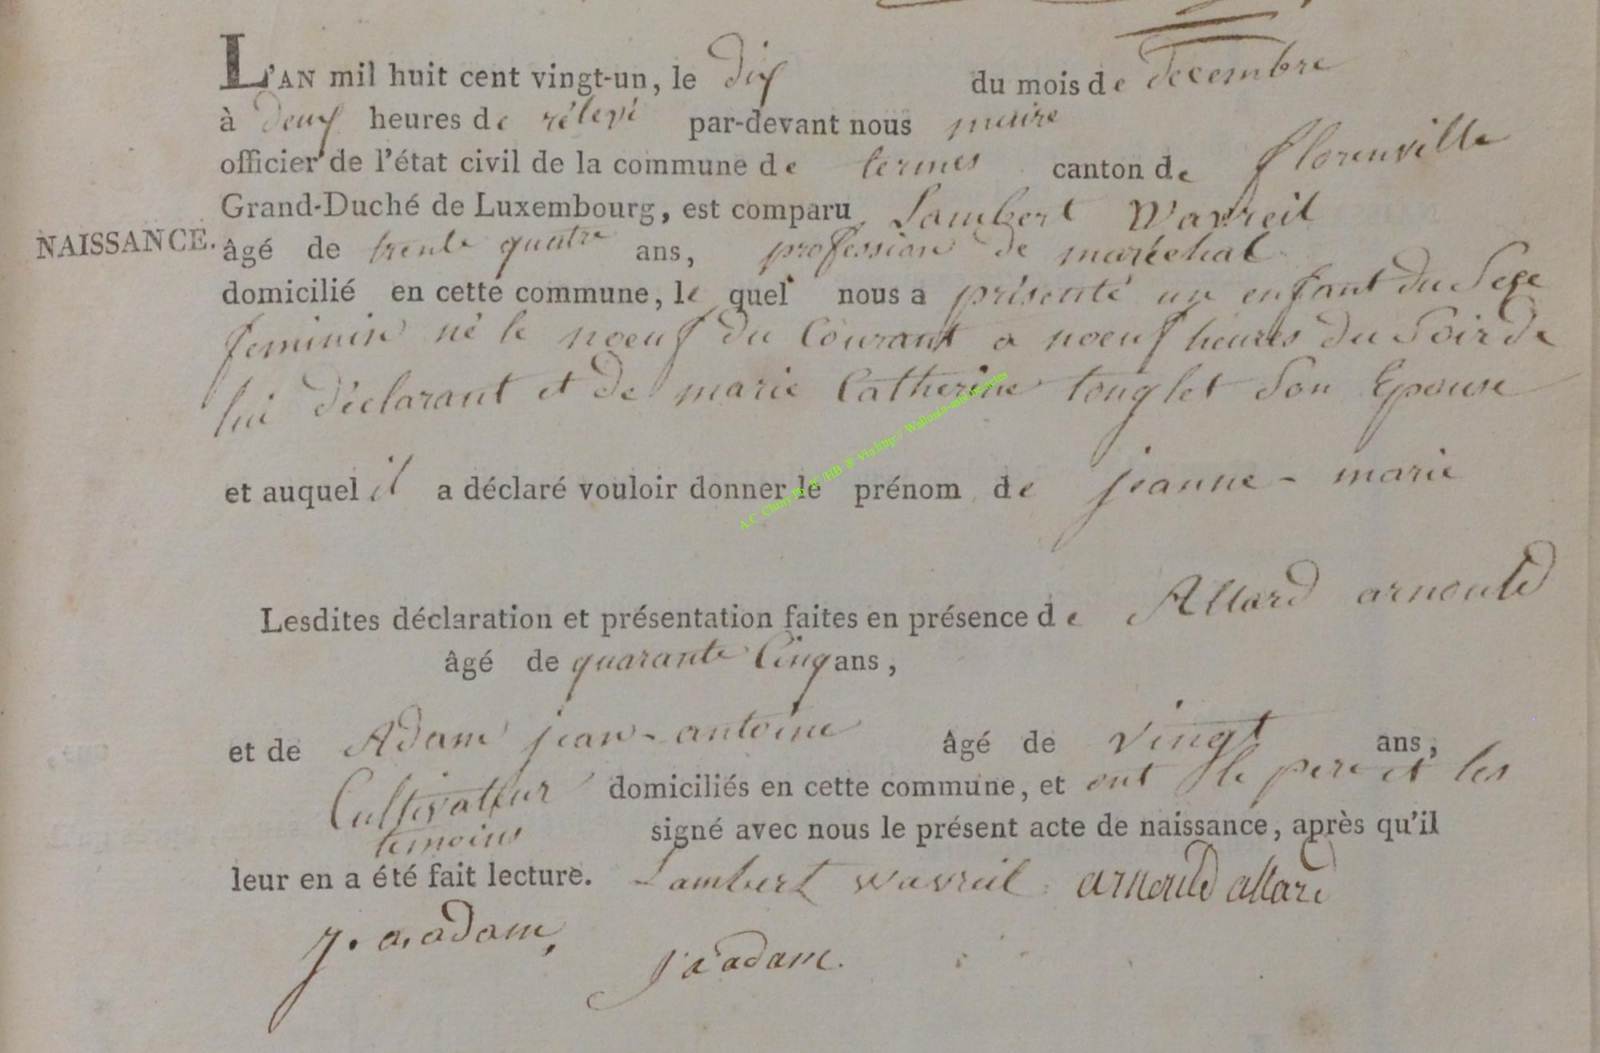 L'AN mil huit cent vingt-un, le dix du mois de decembre
à deux heures de rélevé par-devant nous maire
officier de l'état civil de la commune de termes canton de florenville
Grand-Duché de Luxembourg, est comparu Lambert Wavreil
NAISSANCE. âgé de trente quatre ans, profession de maréchal
domicilié en cette commune, le quel nous a présenté un enfant du Sexe
feminin né le noeuf du Courant a noeuf heures du Soir de
lui déclarant et de marie Catherine tonglet Son Epouse
et auquel il a déclaré vouloir donner le prénom de jeanne-marie
Lesdites déclaration et présentation faites en présence de Allard arnould
âgé de quarante Cinq ans,
et de Adam jean-antoine âgé de vingt ans,
Cultivateur domiciliés en cette commune, et ont le pere et les
temoins signé avec nous le présent acte de naissance, après qu'il
leur en a été fait lecture. Lambert wavreil arnould allard
j. a. adam, j a adam.